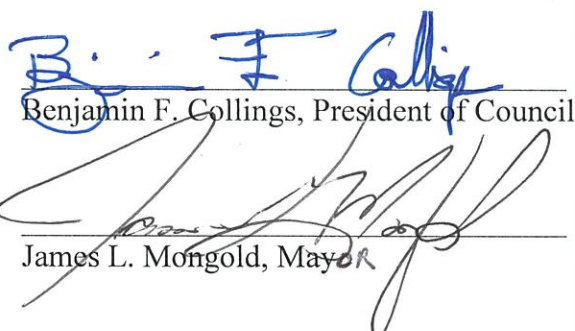 B. F Collings
Benjamin F. Collings, President of Council
James L. Mongold, Mayor